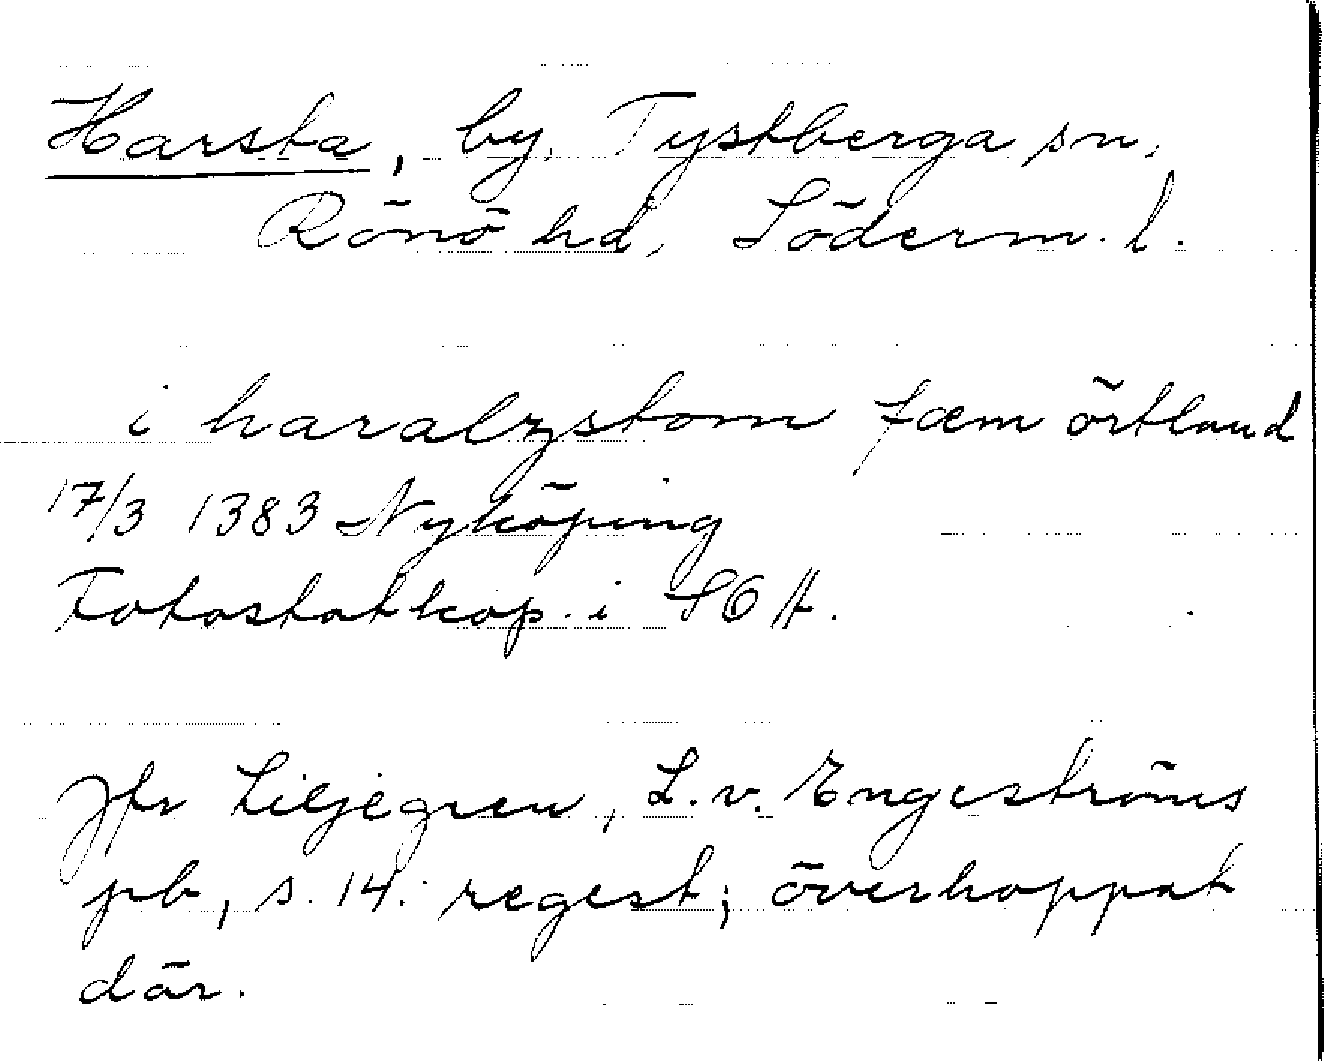 Harsta, by, Tystberga sn,
Rönö hd, Söderm. l.
i haralzstom fæm örtland
17/3 1383 Nyköping
Fotostatkop. i SOA.
Jfr Liljegren, L. v. Engeströms
pb, s. 14: regest; överhoppat
där.